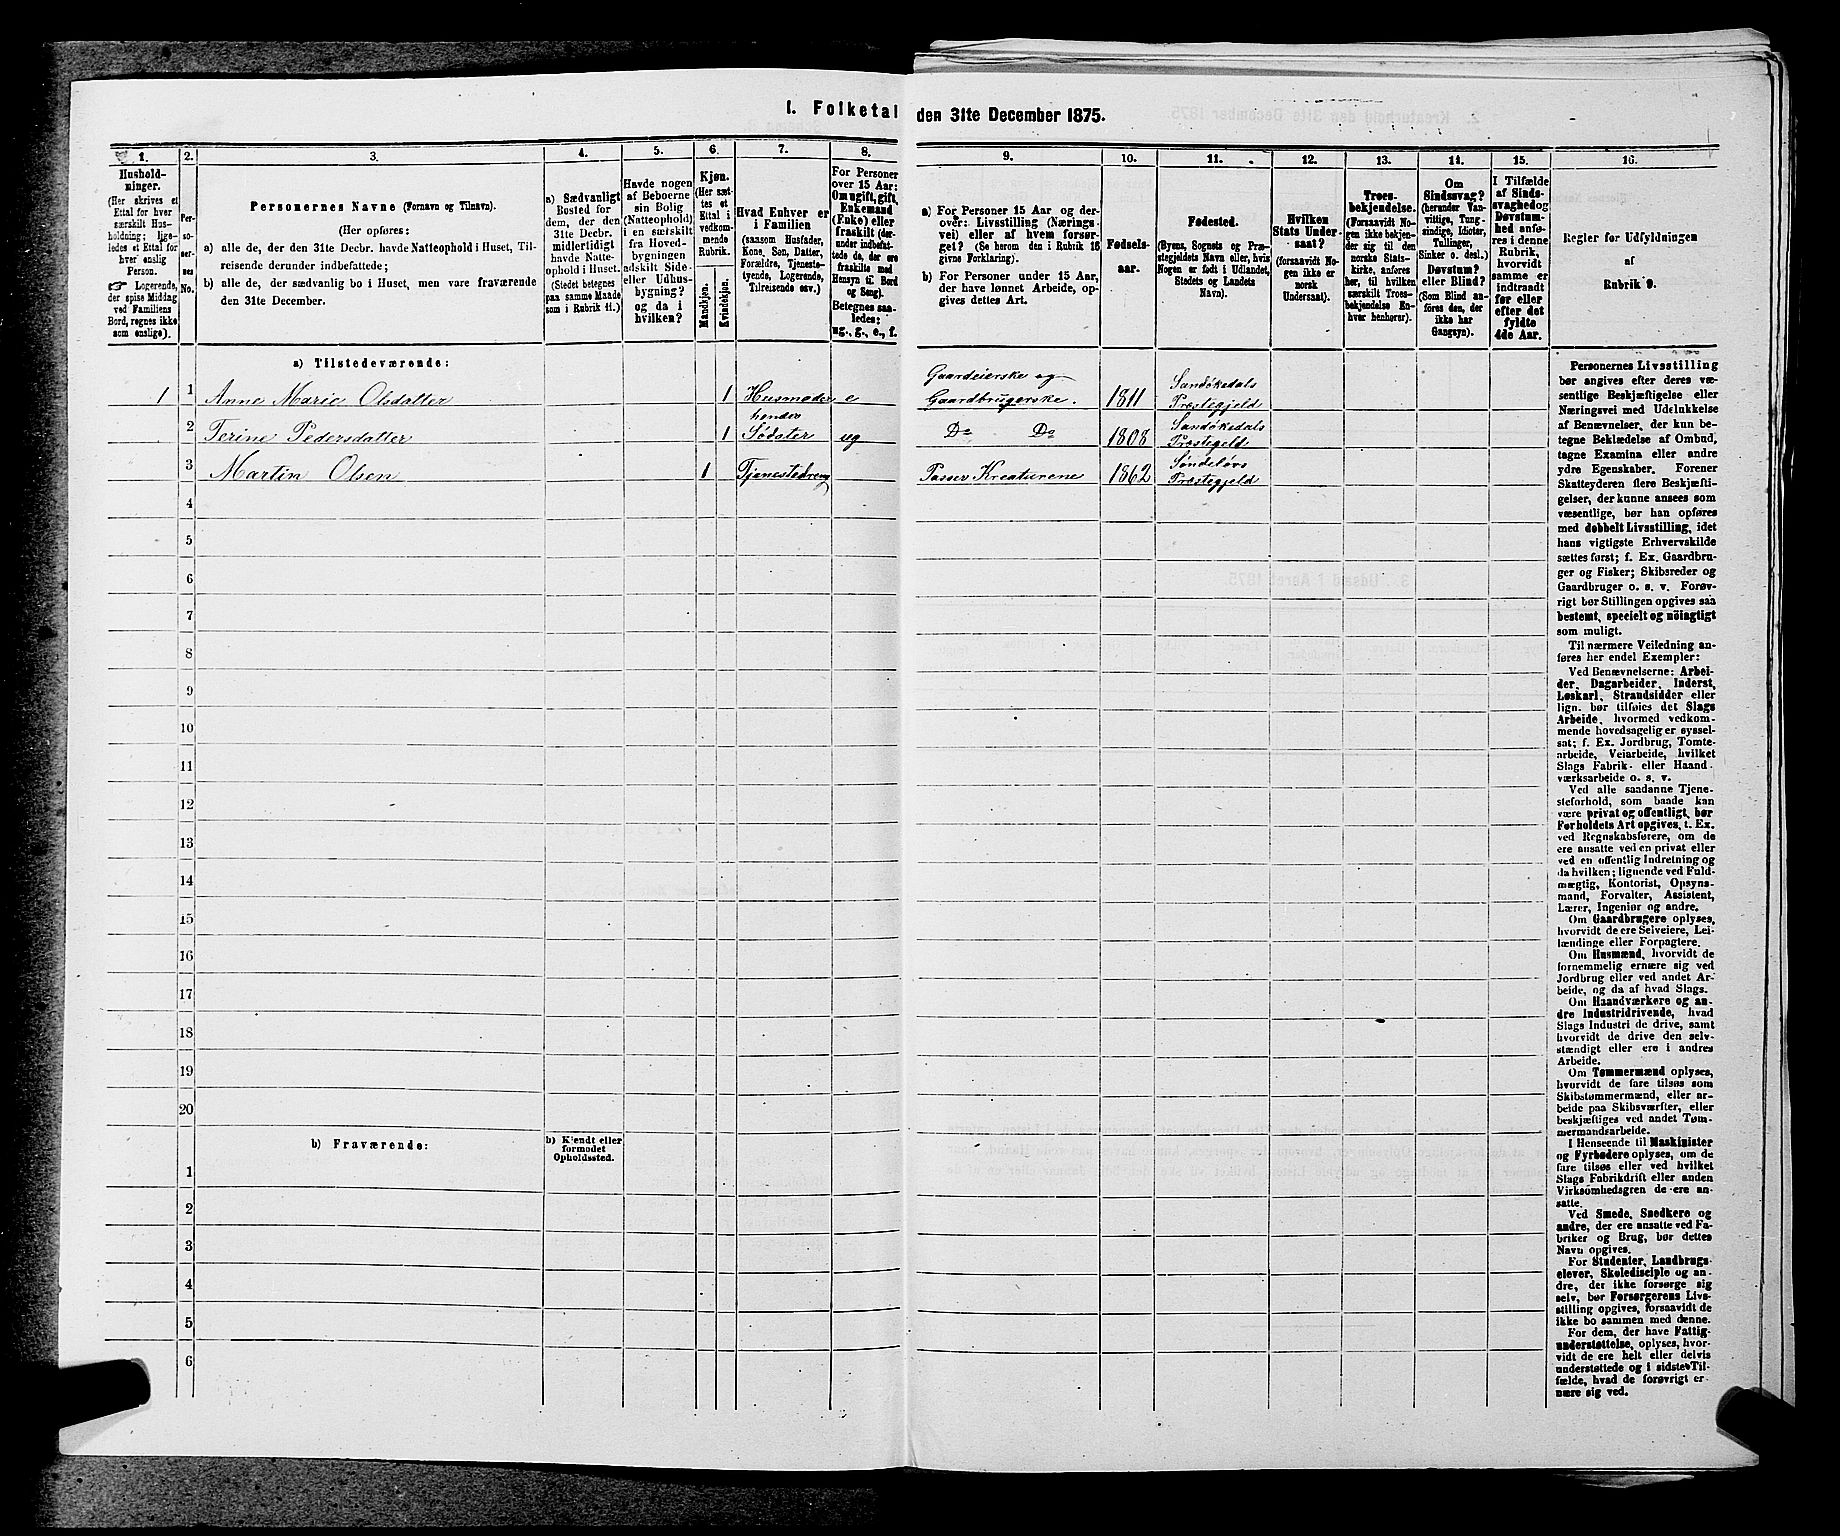 I. Folketal den 31te December 1875.
1.
2.
3.
4.
5.
6.
7.
8.
9.
10.
11.
12.
13.
14.
15.
16.
Hushold-
ninger.
(Her skrives et
Ettal for hver
særskilt Hus-
holdning; lige-
ledes et Ettal for
hver enslig
Person.
☛ Logerende,
der spise Middag
ved Familiens
Bord, regnes ikke
som enslige).
Per-
so-
ner-
nes
No.
Personernes Navne (Fornavn og Tilnavn).
(Her opføres:
a) alle de, der den 31te Decbr. havde Natteophold i Huset, Til-
reisende derunder indbefattede;
b) alle de, der sædvanlig bo i Huset, men vare fraværende
den 31te December.
a) Sædvanligt
Bosted for
dem, der den
31te Decbr.
midlertidigt
havde Natte-
ophold i Huset.
(Stedet betegnes
paa samme Maade
som i Rubrik 11.)
Havde nogen
af Beboerne
sin Bolig
(Natteophold)
i en særskilt
fra Hoved-
bygningen
adskilt Side-
eller Udhus-
bygning?
og da i
hvilken?
Kjøn.
(Her sæt-
tes et
Ettal i
vedkom-
mende
Rubrik.
Mandkjøn.
Kvindekjøn.
Hvad Enhver er
i Familien
(saasom Husfader,
Kone, Søn, Datter,
Forældre, Tjeneste-
tyende, Logerende,
Tilreisende osv.)
For Personer
over 15 Aar:
Om ugift, gift,
Enkemand
(Enke) eller
fraskilt (der-
under indbefat-
tede de, der ere
fraskilte med
Hensyn til Bord
og Seng).
Betegnes saa-
ledes:
ug., g., e., f.
a) For Personer 15 Aar og der-
over: Livsstilling (Nærings-
vei) eller af hvem forsør-
get? (Se herom den i Rubrik 16
givne Forklaring).
b) For Personer under 15 Aar,
der have lønnet Arbeide, op-
gives dettes Art.
Fødsels-
aar.
Fødested.
(Byens, Sognets og Præ-
stegjeldets Navn eller, hvis
Nogen er født i Udlandet,
Stedets og Landets
Navn).
Hvilken
Stats Under-
saat?
(forsaavidt No-
gen ikke er
norsk
Undersaat).
Troes-
bekjendelse.
(Forsaavidt No-
gen ikke bekjen-
der sig til den
norske Stats-
kirke, anføres
her, til hvilken
særskilt Troes-
bekjendelse En-
hver henhører).
Om
Sindssvag?
(herunder Van-
vittige, Tung-
sindige, Idioter,
Tullinger,
Sinker o. desl.)
Døvstum?
eller Blind?
(Som Blind an-
føres den, der
ikke har
Gangsyn).
I Tilfælde
af Sinds-
svaghed og
Døvstum-
hed anfø-
res i denne
Rubrik,
hvorvidt
samme er
indtraadt
før eller
efter det
fyldte
4de Aar.
Regler for Udfyldningen
af
Rubrik 9.
a) Tilstedeværende:
1 1 Anne Marie Olsdatter 1 Husmoder e Gaardeierske og Gaardbrugerske. 1811 Sandøkedals Præstegjeld
2 Terine Pedersdatter 1 hendes Sødater ug Do Do 1808 Sandøkedals Præstegeld
3 Martin Olsen 1 Tjenestedreng Passer Kreaturene 1862 Søndeløvs Præstegjeld
4
5
6
7
8
9
10
11
12
13
14
15
16
17
18
19
20
b) Fraværende:
b) Kjendt eller
formodet
Opholdssted.
1
2
3
4
5
6
Personernes Livsstilling
bør angives efter deres væ-
sentlige Beskjæftigelse eller
Næringsvei med Udelukkelse
af Benævnelser, der kun be-
tegne Beklædelse af Ombud,
tagne Examina eller andre
ydre Egenskaber. Forener
Skatteyderen flere Beskjæfti-
gelser, der kunne ansees som
væsentlige, bør han opføres
med dobbelt Livsstilling, idet
hans vigtigste Erhvervskilde
sættes først; f. Ex. Gaardbru-
ger og Fisker; Skibsreder og
Gaardbruger o. s. v. Forøv-
rigt bør Stillingen opgives saa
bestemt, specielt og nöiagtigt
som muligt.
Til nærmere Veiledning an-
føres her endel Exempler:
Ved Benævnelserne: Arbei-
der, Dagarbeider, Inderst,
Løskarl, Strandsidder eller
lign. bør tilføies det Slags
Arbeide, hvormed vedkom-
mende hovedsagelig er syssel-
sat; f. Ex. Jordbrug, Tomte-
arbeide, Veiarbeide, hvilket
Slags Fabrik- eller Haand-
værksarbeide o. s. v.
Ved alle saadanne Tjene-
steforhold, som baade kan
være privat og offentligt, bør
Forholdets Art opgives, t. Ex.
ved Regnskabsførere, om de
ere ansatte ved en privat eller
ved en offentlig Indretning og
da hvilken; lignende ved Fuld-
mægtig, Kontorist, Opsyns-
mand, Forvalter, Assistent,
Lærer, Ingeniør og andre.
Om Gaardbrugere oplyses,
hvorvidt de ere Selveiere, Lei-
lændinge eller Forpagtere.
Om Husmænd, hvorvidt de
fornemmelig ernære sig ved
Jordbrug eller ved andet Ar-
beide, og da af hvad Slags.
Om Haandværkere og an-
dre Industridrivende, hvad
Slags Industri de drive, samt
hvorvidt de drive den selv-
stændigt eller ere i andres
Arbeide.
Om Tømmermænd oplyses,
hvorvidt de fare tilsøs som
Skibstømmermænd, eller ar-
beide paa Skibsværfter, eller
beskjæftiges ved andet Tøm-
mermandsarbeide.
I Henseende til Maskinister
og Fyrbødere oplyses, om de
fare tilsøs eller ved hvilket
Slags Fabrikdrift eller anden
Virksomhedsgren de ere an-
satte.
Ved Smede, Snedkere og
andre, der ere ansatte ved Fa-
briker og Brug, bør dettes
Navn opgives.
For Studenter, Landbrugs-
elever, Skoledisciple og an-
dre, der ikke forsørge sig
selv, bør Forsørgerens Livs-
stilling opgives, forsaavidt de
ikke bo sammen med denne.
For dem, der have Fattig-
understøttelse, oplyses, hvor-
vidt de ere helt eller delvis
understøttede og i sidste Til-
fælde, hvad de forøvrigt er-
nære sig ved.